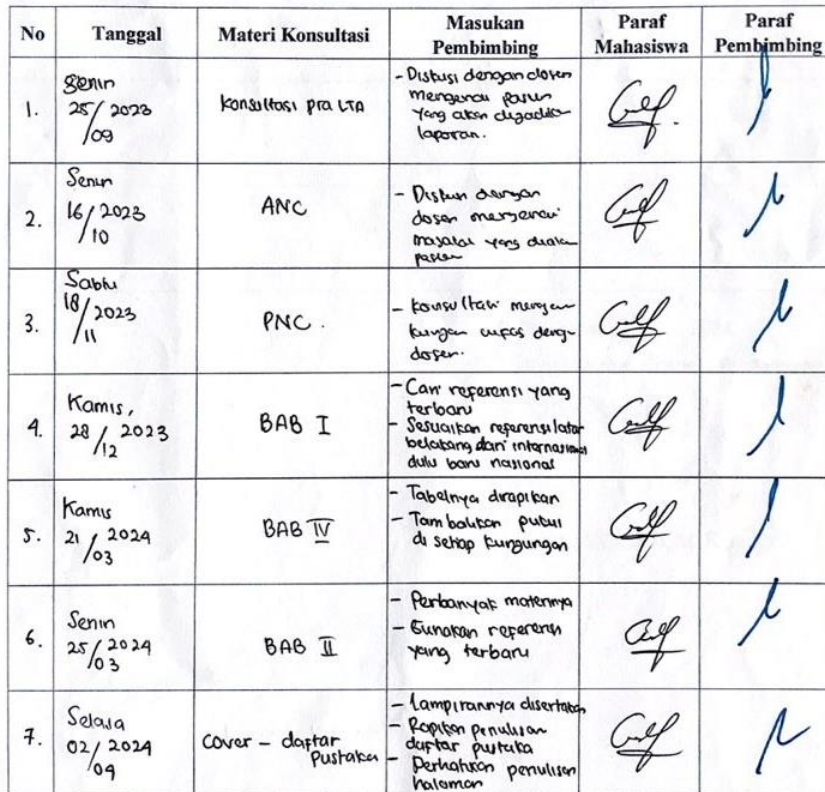 No Tanggal Materi Konsultasi Masukan Pembimbing Paraf Mahasiswa Paraf Pembimbing
1. Senin 25/09 2023
Konsultasi pra LTA
- Diskusi dengan dosen
mengenai pasien
yang akan dijadikan
laporan.
2. Senin 16/10 2023
ANC
- Diskusi dengan
dosen mengenai
masalah yang dialami
pasien
3. Sabtu 18/11 2023
PNC.
- konsultasi mengenai
kunjungan nifas dengan
dosen.
4. Kamis, 28/12 2023
BAB I
- Cari referensi yang
terbaru
- Sesuaikan referensi latar
belakang dari internasional
dulu baru nasional
5. Kamis 21/03 2024
BAB IV
- Tabelnya dirapikan
- Tambahkan
di setiap kunjungan
6. Senin 25/03 2024
BAB II
- Perbanyak materinya
- Gunakan referensi
yang terbaru
7. Selasa 02/04 2024
cover - daftar
pustaka
- Lampirannya disertakan
- Rapikan penulisan
daftar pustaka
- Perhatikan penulisan
halaman